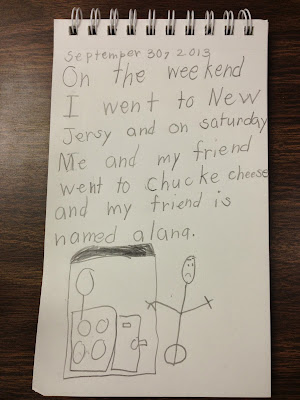 September 30, 2013
On the weekend
I went to New
Jersy and on saturday
Me and my friend
went to chucke cheese
and my friend is
named alana.